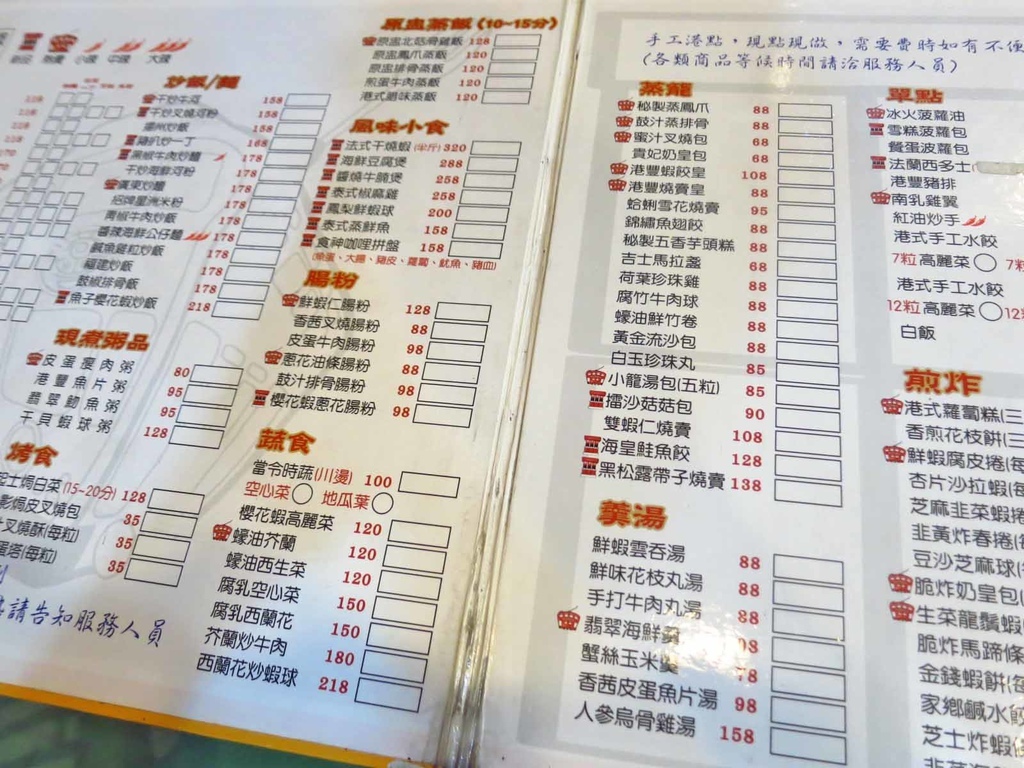 新品 熱賣 小辣 中辣 大辣
炒飯/麵
干炒牛河 158
干炒叉燒河粉 158
揚州炒飯 158
豬扒炒一丁 168
黑椒牛肉炒麵 178
干炒海鮮河粉 178
廣東炒麵 178
招牌星洲米粉 178
青椒牛肉炒飯 178
醬辣海鮮公仔麵 178
鹹魚雞粒炒飯 178
福建炒飯 178
豉椒排骨飯 178
魚子櫻花蝦炒飯 218
現煮粥品
皮蛋瘦肉粥 80
港豐魚片粥 95
翡翠魩魚粥 95
干貝蝦球粥 128
烤食
芝士焗白菜(15~20分) 128
焗皮叉燒包 35
叉燒酥(每粒) 35
蛋塔(每粒) 35
請告知服務人員
原盅蒸飯(10~15分)
原盅北菇滑雞飯 128
原盅鳳爪蒸飯 120
原盅排骨蒸飯 120
煎蛋牛肉蒸飯 120
港式臘味蒸飯 120
風味小食
法式干燒蝦(半斤) 320
海鮮豆腐煲 288
醬燒牛腩煲 258
泰式椒麻雞 258
鳳梨鮮蝦球 200
泰式蒸鮮魚 158
食神咖哩拼盤 158
(魚蛋、大腸、豬皮、蘿蔔、魷魚、豬血)
腸粉
鮮蝦仁腸粉 128
香茜叉燒腸粉 88
皮蛋牛肉腸粉 98
蔥花油條腸粉 88
豉汁排骨腸粉 98
櫻花蝦蔥花腸粉 98
蔬食
當令時蔬(川燙) 100
空心菜 地瓜葉
櫻花蝦高麗菜 120
蠔油芥蘭 120
蠔油西生菜 120
腐乳空心菜 150
腐乳西蘭花 150
芥蘭炒牛肉 180
西蘭花炒蝦球 218
手工港點，現點現做，需要費時如有不便
(各類商品等候時間請洽服務人員)
蒸籠
秘製蒸鳳爪 88
鼓汁蒸排骨 88
蜜汁叉燒包 68
貴妃奶皇包 68
港豐蝦餃皇 108
港豐燒賣皇 88
蛤蜊雪花燒賣 95
錦繡魚翅餃 88
秘製五香芋頭糕 88
吉士馬拉盞 68
荷葉珍珠雞 88
腐竹牛肉球 88
蠔油鮮竹卷 88
黃金流沙包 88
白玉珍珠丸 85
小籠湯包(五粒) 85
擂沙菇菇包 90
雙蝦仁燒賣 108
海皇鮭魚餃 128
黑松露帶子燒賣 138
羹湯
鮮蝦雲吞湯 88
鮮味花枝丸湯 88
手打牛肉丸湯 88
翡翠海鮮羹
蟹絲玉米羹
香茜皮蛋魚片湯 98
人參烏骨雞湯 158
單點
冰火菠蘿油
雪糕菠蘿包
餐蛋菠蘿包
法蘭西多士
港豐豬排
南乳雞翼
紅油炒手
港式手工水餃
7粒高麗菜
港式手工水餃
12粒高麗菜
白飯
煎炸
港式蘿蔔糕(三
香煎花枝餅(三
鮮蝦腐皮捲(每
杏片沙拉蝦(每
芝麻韭菜蝦捲
韭黃炸春捲(每
豆沙芝麻球(每
脆炸奶皇包(
生菜龍鬚蝦(
脆炸馬蹄條
金錢蝦餅(每
家鄉鹹水餃
芝士炸蝦